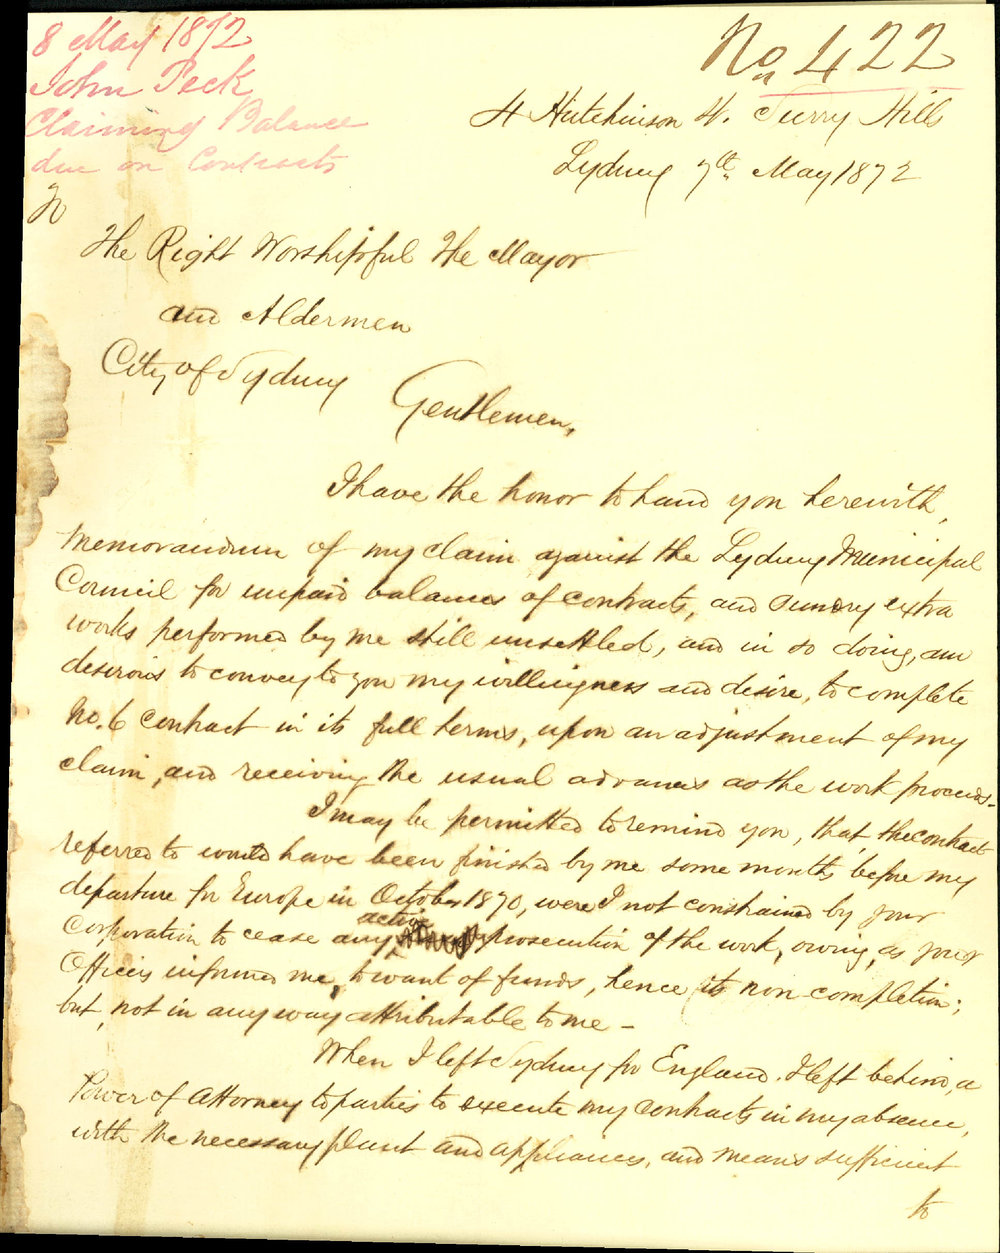 8 May 1872
John Peck
Claiming Balance
due on Contracts
No. 422
4 Hutchinson St. Surry Hills
Sydney 7th. May 1872
To
The Right Worshipful The Mayor
and Aldermen
City of Sydney
Gentlemen,
I have the honor to hand you herewith,
Memorandum of my claim against the Sydney Municipal
Council for unpaid balances of contracts, and sundry extra
works performed by me still unsettled, and in so doing, am
desirous to convey to you my willingness and desire, to complete
No. 6 Contract in its full terms, upon an adjustment of my
claim, and receiving the usual advances as the work proceeds-
I may be permitted to remind you, that, the contract
referred to would have been finished by me some months, before my
departure for Europe in October 1870, were I not constrained by your
Corporation to cease any active prosecution of the work, owing, as your
Officers informed me, to want of funds, hence its non-completion;
but, not in any way attributable to me -
When I left Sydney for England. I left behind, a
Power of Attorney to parties to execute my contracts in my absence,
with the necessary plant and appliances, and means sufficient
to